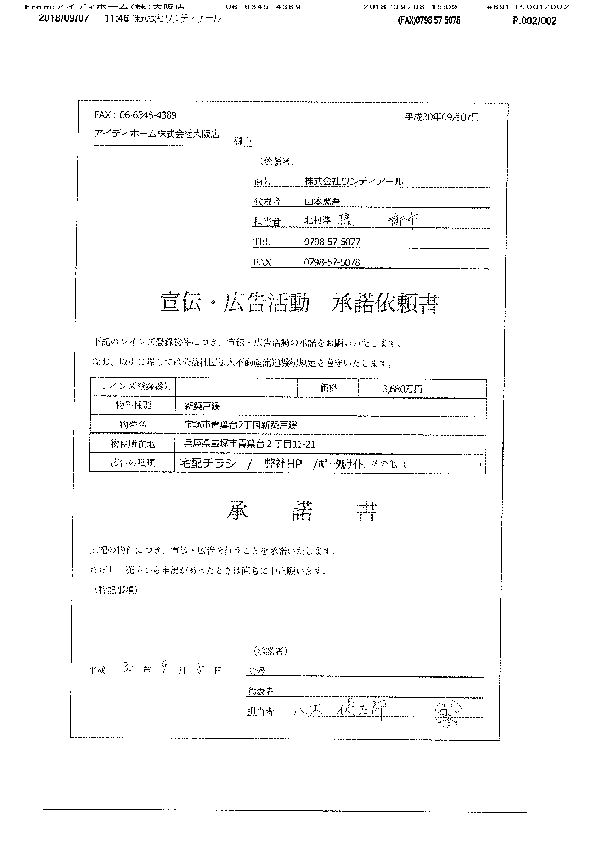 From:アイディホーム(株)大阪店 06 6345 4389 2018/09/08 15:09 #691 P.001/002
2018/09/07 11:46 株式会社ワンディアール (FAX)0798 57 5078 P.002/002
FAX：06-6345-4389 平成30年09月07日
アイディホーム株式会社大阪店 御中
（依頼者）
商号 株式会社ワンディアール
代表者
担当者
TEL 0798-57-5077
FAX 0798-57-5078
宣伝・広告活動 承諾依頼書
下記のレインズ登録物件につき、宣伝・広告活動の承諾をお願いいたします。
レインズ登録番号 価格 3,680万円
物件種類 新築戸建
物件名 宝塚市青葉台2丁目新築戸建
物件所在地 兵庫県宝塚市青葉台２丁目11-21
広告の種類 宅配チラシ / 弊社HP /ポータルサイト/その他（ ）
承 諾 書
上記の物件につき、宣伝・広告を行うことを承諾いたします。
（特記事項）
（承諾者）
平成 30 年 9 月 日 商号
代表者
担当者